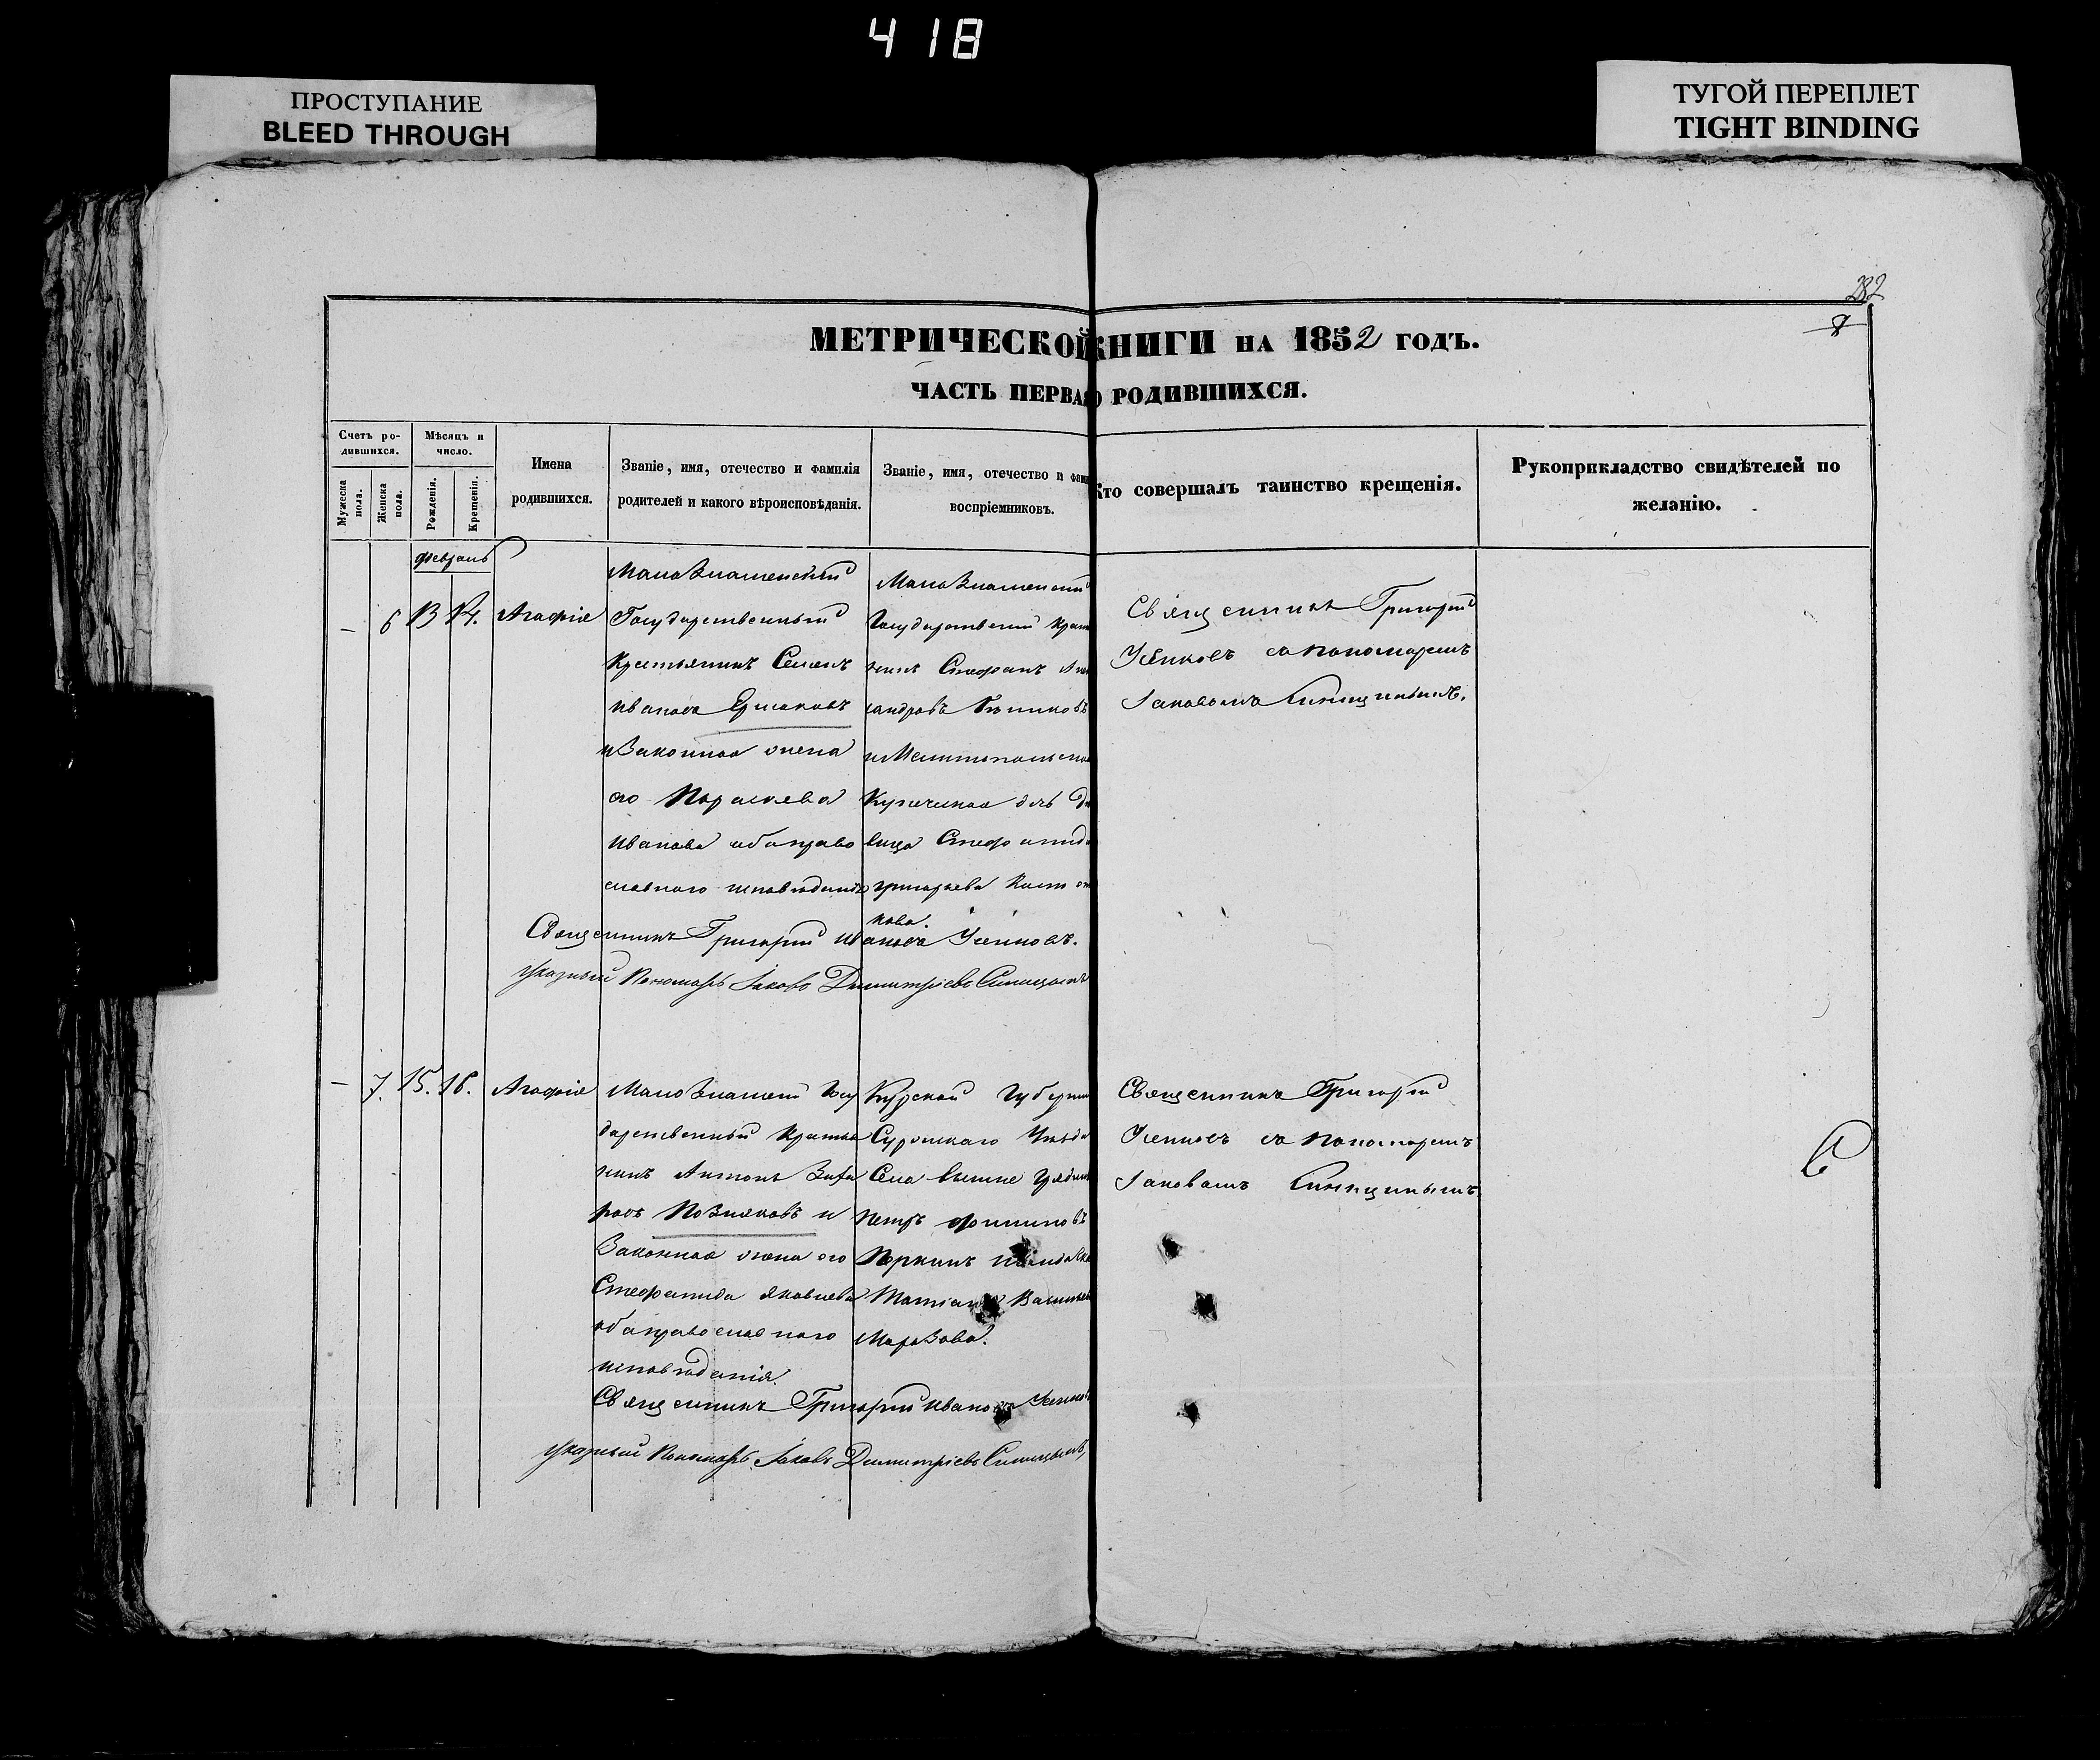 418
ПРОСТУПАНИЕ
BLEED THROUGH
ТУГОЙ ПЕРЕПЛЕТ
TIGHT BINDING
282
8
МЕТРИЧЕСКОЙ КНИГИ НА 1852 ГОДЪ.
ЧАСТЬ ПЕРВАЯ О РОДИВШИХСЯ.
Счетъ ро-
дившихся.
Мужеска пола.
Женска пола.
Мѣсяцъ и
число.
Рожденія.
Крещенія.
Имена
родившихся.
Званіе, имя, отечество и фамилія
родителей и какого вѣроисповѣданія.
Званіе, имя, отечество и фами
воспріемниковъ.
Кто совершалъ таинство крещенія.
Рукоприкладство свидѣтелей по
желанію.
Февраль
— 6 13 14. Агафія
Малознаменскій
Государственный
Крестьянинъ Семенъ
Ивановъ Ермаковъ
и Законная жена
его Параскева
Иванова оба право
славного исповѣданія
Малознаменскій
Государственій Крест
нинъ Стефанъ Алек
сандровъ
и Мелитопольская
Купеческая дочь дѣ
вица Стефанида
Григорьева
кова.
Священникъ Григорій
Усенковъ съ пономаремъ
Іаковомъ Синицинымъ.
Священникъ Григорій Ивановъ Усенковъ.
Указный Пономарь Іаковъ Димитріевъ Синицынъ
— 7. 15. 16. Агафія
Малознамені Госу
дарственный Крестья
нинъ Антонъ Заха
ровъ Позняковъ и
Законная жена его
Стефанида Яковлева
оба православного
исповѣданія.
Курской Губерніи
Суджскаго Уѣзда
Села
Петръ
Татіана Васильева
Морозова.
Священникъ Григорій
Усенковъ съ пономаремъ
Іаковомъ Синицинымъ
Священникъ Григорій Ивановъ Усенковъ
Указный Пономарь Іаковъ Димитріевъ Синицынъ,